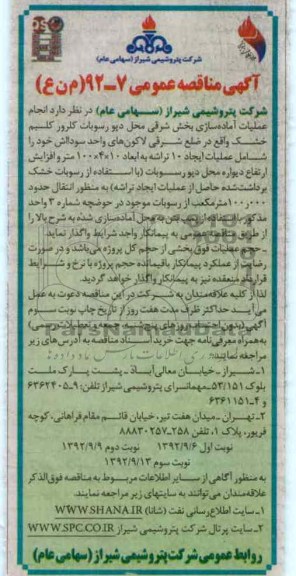 شرکت پتروشیمی شیراز (سهامی عام)
آگهی مناقصه عمومی ۷-۹۲ (م ن ع)
شرکت پتروشیمی شیراز (سهامی عام) در نظر دارد انجام
عملیات آماده‌سازی بخش شرقی محل دپو رسوبات کلرور کلسیم
خشک واقع در ضلع شرقی لاگون‌های واحد سودااش خود را
شامل عملیات ایجاد ۱۰ تراشه به ابعاد ۱۰×۴×۱۰۰ متر و افزایش
ارتفاع دیواره محل دپو رسوبات (با استفاده از رسوبات خشک
برداشت‌شده حاصل از عملیات ایجاد تراشه) به منظور انتقال حدود
۱۰۰،۰۰۰ مترمکعب از رسوبات موجود در حوضچه شماره ۳ واحد
مذکور به محل آماده‌سازی شده به شرح بالا را
از طریق مناقصه عمومی به پیمانکار واجد شرایط واگذار نماید.
حجم عملیات فوق بخشی از حجم کل پروژه می‌باشد و در صورت
رضایت از عملکرد پیمانکار باقیمانده حجم پروژه با نرخ و شرایط
قرارداد منعقده نیز به پیمانکار واگذار خواهد گردید.
لذا از کلیه علاقه‌مندان به شرکت در این مناقصه دعوت به عمل
می‌آید حداکثر ظرف مدت هفت روز از تاریخ چاپ نوبت سوم
آگهی
به همراه معرفی‌نامه جهت خرید اسناد مناقصه به آدرس‌های زیر
مراجعه نمایند:
۱-شیراز-خیابان معالی‌آباد - پشت پارک ملت
بلوک ۵۳/۱۵۱-مهمانسرای پتروشیمی شیراز تلفن: ۹-۶۳۶۲۴۰۵
و ۴-۶۳۶۱۱۵۱
۲-تهران-میدان هفت تیر، خیابان قائم مقام فراهانی، کوچه
فریور، پلاک ۱، تلفن ۲۵۸-۸۸۸۳۰۲۵۷
نوبت اول ۱۳۹۲/۹/۶ نوبت دوم ۱۳۹۲/۹/۹
نوبت سوم ۱۳۹۲/۹/۱۳
به منظور آگاهی از سایر اطلاعات مربوط به مناقصه فوق‌الذکر
علاقه‌مندان می‌توانند به سایتهای زیر مراجعه نمایند.
۱-سایت اطلاع‌رسانی نفت (شانا) WWW.SHANA.IR
۲-سایت پرتال شرکت پتروشیمی شیراز WWW.SPC.CO.IR
روابط عمومی شرکت پتروشیمی شیراز (سهامی عام)